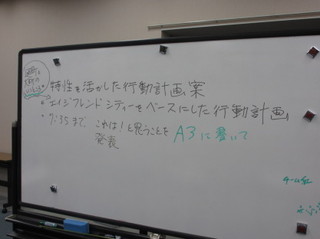 ・特性を活かした行動計画案
・エイジフレンドシティーをベースにした行動計画
・7:35まで、これは!と思うことを A3に書いて
発表
チーム名